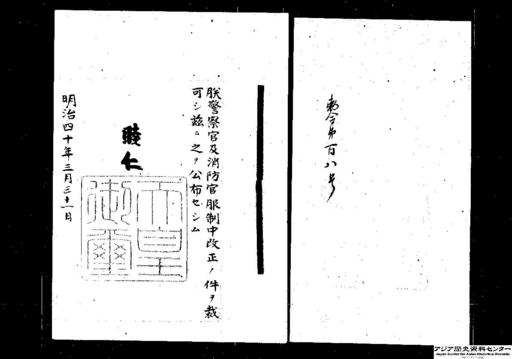 勅令第百八号
朕警察官及消防官服制中改正ノ件ヲ裁
可シ茲ニ之ヲ公布セシム
睦仁
天皇御璽
明治四十年三月三十一日
アジア歴史資料センター
Japan Center for Asian Historical Records